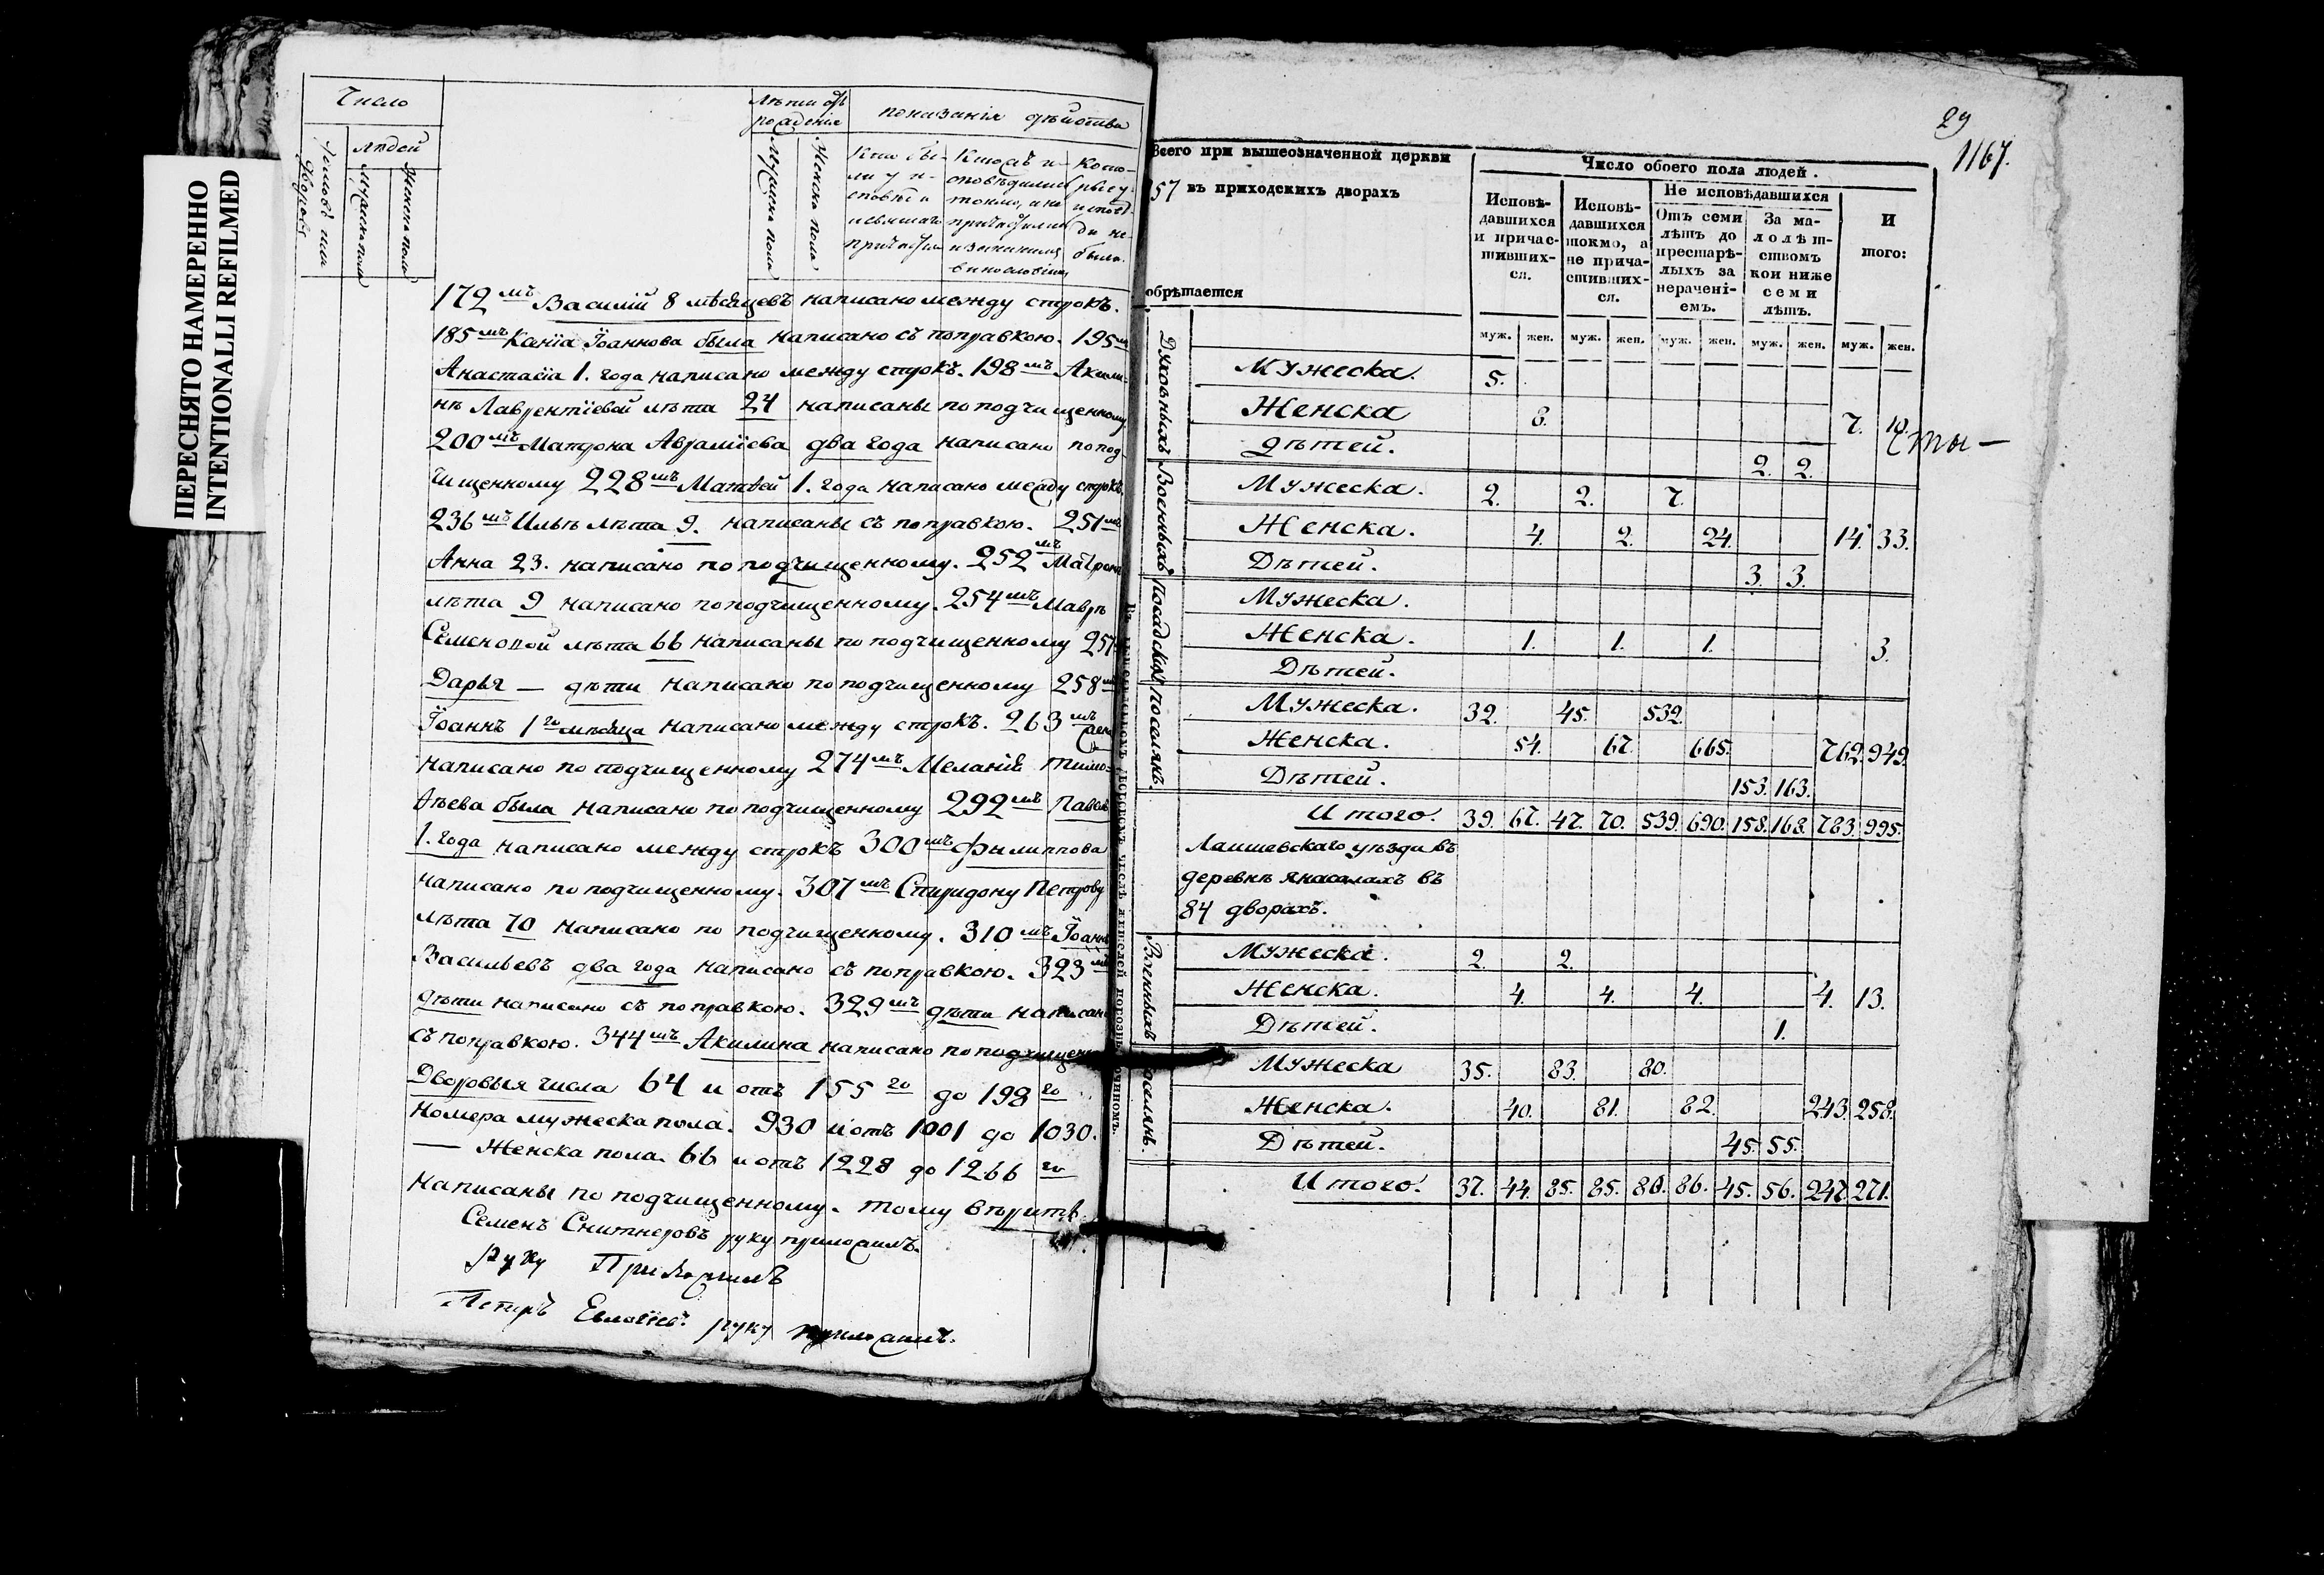 ПЕРЕСНЯТО НАМЕРЕННО
INTENTIONALLI REFILMED
Число
Людей
Мужеска пола
Женска пола
Лѣта отъ рожденія
Мужеска пола
Женска пола
показанія дѣйства
Кто бы-
ли у и-
сповѣди
и святаго
причастія
172мъ Василій 8 мѣсяцевъ написано между строкъ.
185мъ Ксенїа Їоаннова была написано съ поправкою. 195мъ
Анастасїа 1. года написано между строкъ. 198мъ Акили-
нѣ Лаврентїевой лѣта 24 написаны по подчищенному
200мъ Матрона Авраміева два года написано по под-
чищенному 228мъ Матвей 1. года написано между строкъ
236мъ Ильѣ лѣта 9. написаны съ поправкою. 251мъ
Анна 23. написано по подчищенному. 252мъ Матроне
лѣта 9 написано по подчищенному. 254мъ Маврѣ
Семеновой лѣта 66 написаны по подчищенному 257
Дарья — дѣти написано по подчищенному 258мъ
Їоаннъ 1го мѣсяца написано между строкъ. 263мъ
написано по подчищенному 274мъ Меланїа Тимо-
ѳѣева была написано по подчищенному 292мъ Павелъ
1. года написано между строкъ 300мъ Филиппова
написано по подчищенному. 307мъ Спиридону Петрову
лѣта 70 написано по подчищенному. 310мъ Їоаннъ
Васильевъ два года написано съ поправкою. 323мъ
дѣти написано съ поправкою. 329мъ дѣти написано
съ поправкою. 344мъ Акилина написано по подчищен
Дворовыя числа 64 и отъ 155го до 198го
Номера мужеска пола. 930 и отъ 1001 до 1030.
— Женска пола 66 и отъ 1228 до 1266го
Написаны по подчищенному.
Семенъ руку приложилъ.
руку Приложилъ
Петръ руку приложилъ.
29
1167.
Всего при вышеозначенной церкви
257 въ приходскихъ дворахъ
обрѣтается
Число обоего пола людей.
Исповѣ-
давшихся
и причас-
тивших-
ся.
Исповѣ-
давшихся
токмо, а
не прича-
стивших-
ся.
Не исповѣдавшихся
Отъ семи
лѣтъ до
престарѣ-
лыхъ за
нерачені-
емъ.
За ма-
лолѣт-
ствомъ
кои ниже
семи
лѣтъ.
И
того:
муж. жен. муж. жен. муж. жен. муж. жен. муж. жен.
Духовныхъ
Мужеска. 5.
Женска 8. 7. 10.
Дѣтей. 2. 2.
Военныхъ
Мужеска. 2. 2. 7.
Женска. 4. 2. 24. 14. 33.
Дѣтей. 3. 3.
Посадскихъ
Мужеска.
Женска. 1. 1. 1. 3.
Дѣтей.
Поселянъ.
Мужеска. 32. 45. 532.
Женска. 54. 67. 665. 762. 949.
Дѣтей. 153. 163.
Итого. 39. 67. 47. 70. 539. 690. 158. 168. 783. 995.
Лаишевскаго уѣзда въ
деревнѣ Янасалахъ въ
84 дворахъ.
Военныхъ
Мужеска. 2. 2.
Женска. 4. 4. 4. 4. 13.
Дѣтей. 1.
Поселянъ.
Мужеска 35. 83. 80.
Женска. 40. 81. 82. 243. 258.
Дѣтей. 45. 55.
Итого. 37. 44. 85. 85. 80. 86. 45. 56. 247. 271.